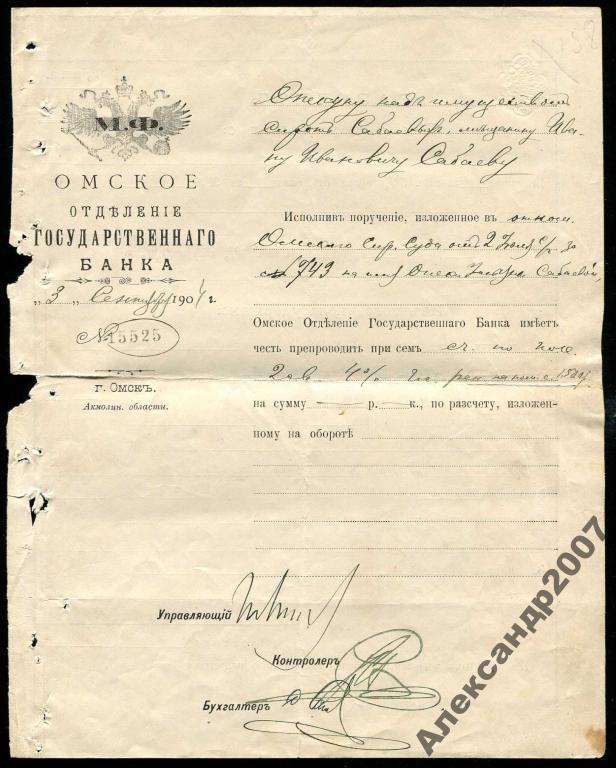 М.Ф.
ОМСКОЕ
ОТДѢЛЕНІЕ
ГОСУДАРСТВЕННАГО
БАНКА
„3„ Сентября 1904 г.
№ 15525
г. Омскъ.
Акмолин. области.
Опекуну надъ имуществомъ
сиротъ Сабаевыхъ, мѣщанину Ива-
ну Ивановичу Сабаеву
Исполнивъ порученіе, изложенное въ
Омскаго Сир. Суда отъ 2 Іюля с/г за
№ 743 на имя Сабаевой,
Омское Отдѣленіе Государственнаго Банка имѣетъ
честь препроводить при семъ сч. по
4%
на сумму — р. — к., по разсчету, изложен-
ному на оборотѣ
Управляющій
Контролеръ
Бухгалтеръ
Александр2007